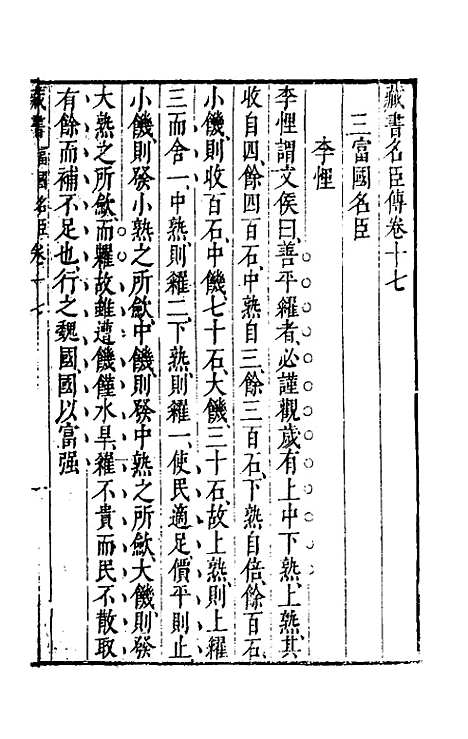 藏書名臣傳卷十七
三富國名臣
李悝
李悝謂文侯曰善平糴者必謹觀歲有上中下熟上熟其
收自四餘四百石中熟自三餘三百石下熟自倍餘百石
小饑則收百石中饑七十石大饑三十石故上熟則上糴
三而舍一中熟則糴二下熟則糴一使民適足價平則止
小饑則發小熟之所歛中饑則發中熟之所歛大饑則發
大熟之所歛而糶故雖遭饑饉水旱糴不貴而民不散取
有餘而補不足也行之魏國國以富强
藏書 富國名臣 卷十七 一